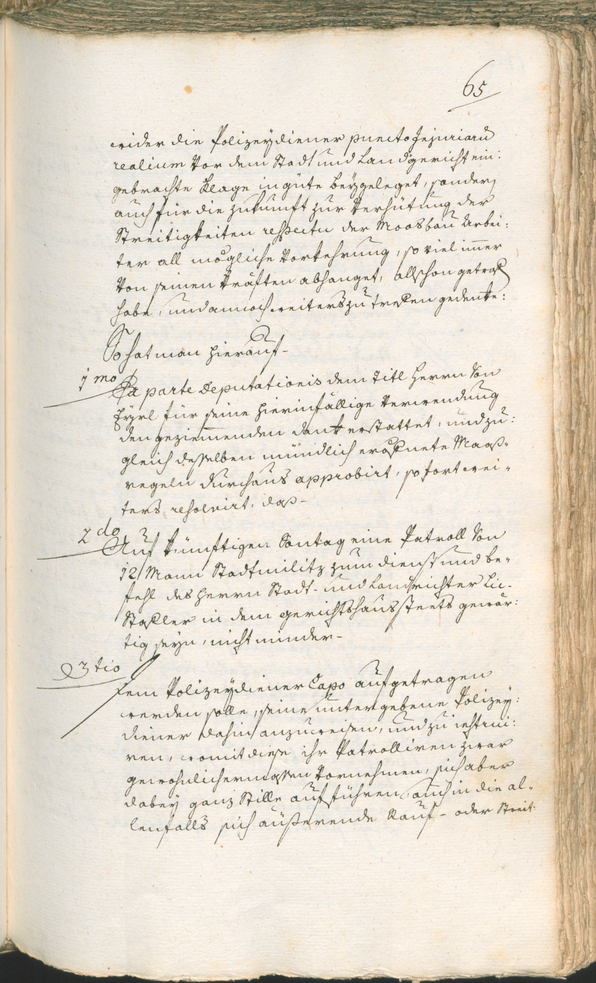 65
wider die Polizeydiener puncto Injuriarū
realium vor dem Stadt und Landgericht ein:
gebrachte Klage in güte beygeleget, sondern
auch für die zukunft zur verhütung der
Streitigkeiten respectu der Moosbau Arbei:
ter all mögliche Vorkehrung, so viel immer
von seinen kräften abhanget, allschon getrofen
habe, und annoch weiters zu trefen gedenke:
So hat man hierauf-
1mo Ex parte Deputationis dem Titl Herrn von
Eyrl für seine hierinfällige verwendung
den geziemenden dank erstattet, und zu:
gleich desselben mündlich eröfnete Maaß-
regeln durchaus approbirt, sofort wei-
ters resolvirt, daß-
2do Auf künftigen Sontag eine Patroll von
12 Mann Stadtmilitz zum dienst und be-
fehl des Herrn Stadt- und Landrichter Lic.
Stafler in dem gerichtshaus steets gewär:
tig seyn, nicht minder-
3tio dem Polizeydiener Capo aufgetragen
werden solle, seine untergebene Polizey:
diener dahin anzuweisen, und zu instrui:
ren, womit diese ihr Patrolliren zwar
gewöhnlichermassen vornehmen, sich aber
dabey ganz Stille aufführen, auch in die al-
lenfalls sich äußerende Rauf- oder Streit: